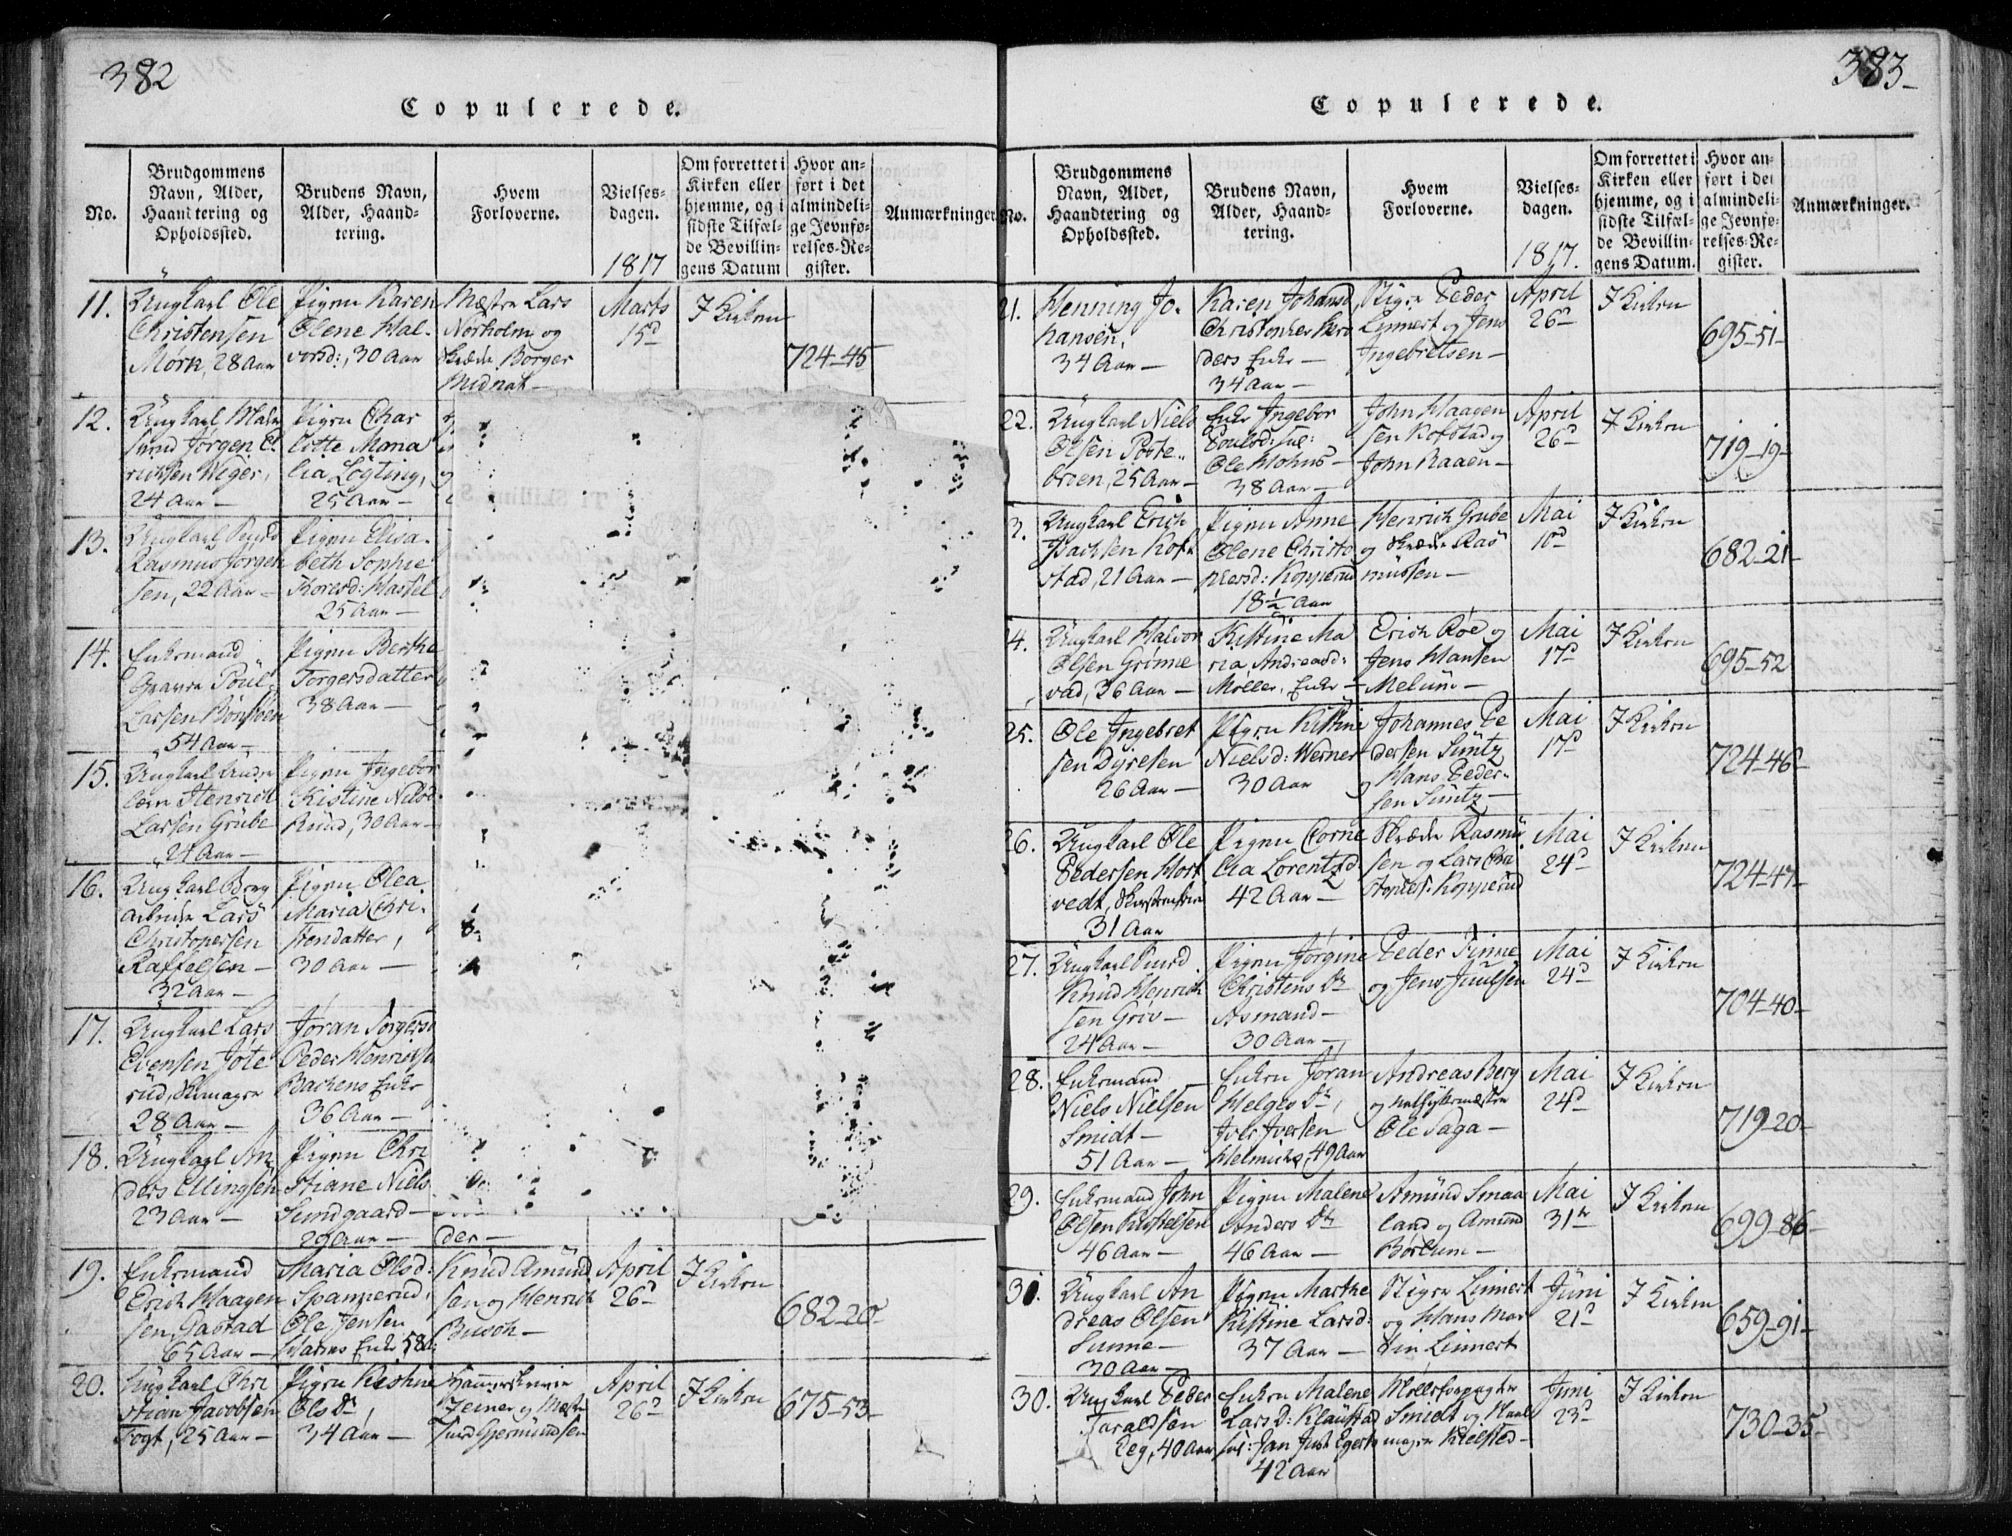 382
Copulerede.
No.
Brudgommens
Navn, Alder,
Haandtering og
Opholdssted.
Brudens Navn,
Alder, Haand-
tering.
Hvem
Forloverne.
Vielses-
dagen.
1817
Om forrettet i
Kirken eller
hjemme, og i
sidste Tilfæl-
de Bevillin-
gens Datum
Hvor an-
ført i det
almindeli-
ge Jevnfø-
relses-Re-
gister.
Anmærkninger.
11.
Ungkarl Ole
Christensen
Mork, 28 Aar
Pigen Karen
Olene Hal-
vorsd:, 30 Aar
Mæstr Lars
Norholm og
Borger
Midnat
Marts
15d
I Kirken
724-45
12.
Ungkarl
Jorgen E
richsen Weger,
24 Aar
Pigen Char
lotte Maria
25 Aar
13.
Ungkarl
Rasmus Jörgen
sen, 22 Aar
Pigen Elisa
beth Sophie
Toresd:
25 Aar
14.
Enkemand
Poul
Larsen
54 Aar
Pigen Berthe
Torgersdatter
38 Aar
15.
Ungkarl
Henrich
Larsen Grube
21 Aar
Pigen Ingebor
Kistine Nilsd
30 Aar
16.
Ungkarl Berg
arbeider Lars
Christopersen
Raffelsen
32 Aar
Pigen Olea
Maria Chri-
stendatter,
30 Aar
17.
Ungkarl Lars
Evensen
28 Aar
Joran Torgersd
Peder Henrichsen
Bachens Enke
36 Aar
18.
Ungkarl An
ders Ellingsen
23 Aar
Pigen Chri
stiane Niels
Sundgaard
29 Aar
der
19.
Enkemand
Erich Haagen
sen, Gastad
65 Aar
Maria Olsd:
Spanperud,
Ole Jensen
Enke 58
Knud Amund
sen og Henrich
Busch
April
26d
I Kirken
682-20
20.
Ungkarl Chri
stian Jacobsen
Fogt, 25 Aar
Pigen Kistine
Ols Dr,
34 Aar
Zeiner og
Gjermundsen
April
26d
I Kirken
675-53
383
Copulerede.
No.
Brudgommens
Navn, Alder,
Haandtering og
Opholdssted.
Brudens Navn,
Alder, Haand-
tering.
Hvem
Forloverne.
Vielses-
dagen.
1817.
Om forrettet i
Kirken eller
hjemme, og i
sidste Tilfæl-
de Bevillin-
gens Datum.
Hvor an-
ført i det
almindeli-
ge Jevnfø-
relses-Re-
gister.
Anmærkninger.
21.
Henning Jo-
hansen,
34 Aar
Karen Johansd
ders Enke
34 Aar
Peder
Linnert og Jens
Ingebretsen
April
26d
I Kirken
695-51
22.
Ungkarl Niels
Olsen Potte-
broen, 25 Aar
Enke Ingebor
Poulsd: sal:
Ole Mohns
38 Aar
John Haagen
sen Kofstad og
John Raaen
April
26d
I Kirken
719-19
3.
Ungkarl Erich
Isachsen Kof
stad, 21 Aar
Pigen Anne
Olene Christo
phersd: Kopperud
18½ Aar
Henrich Grube
og Ras
mussen
Mai
10d
I Kirken
682-21
4.
Ungkarl Halvor
Olsen Grönne
vad, 36 Aar
Kistine Ma
ria Andreasd:
Møller, Enke
Erich Röe og
Jens Hansen
Melum
Mai
17d
I Kirken
695-52
25.
Ole Ingebret
sen Dyresen
26 Aar
Pigen Kistine
Nielsd: Werner
30 Aar
Johannes Pe
dersen Suntz
og Hans Peder-
sen Suntz
Mai
17d
I Kirken
724-46
26.
Ungkarl Ole
Pedersen Hort
vedt,
31 Aar
Pigen Corne
lia Lorentzd
42 Aar
Rasmus
sen og Lars Chri
Kopperud
Mai
24d
I Kirken
724-47
27.
Ungkarl
Knud Henrich
sen Gröv
24 Aar
Pigen Jörgine
Christens Dr
Asmand
30 Aar
Peder Tinne
og Jens Juulsen
Mai
24d
I Kirken
704-40
28.
Enkemand
Niels Nielsen
Smidt
51 Aar
Enken Joran
Helges Dr,
Iver Iversen
49 Aar
Andreas Berg
og
Ole Saga
Mai
24d
I Kirken
719-20
29.
Enkemand John
Olsen Kittelsen
46 Aar
Pigen Malene
Anders Dr
46 Aar
Amund Smaa
land og Amund
Börtum
Mai
31te
I Kirken
699-86
30.
Ungkarl An
dreas Olsen
Sunne
30 Aar
Pigen Marthe
Kistine Larsd:
37 Aar
Linnert
og Hans Mar
tin Linnert
Juni
21d
I Kirken
659-91
30.
Ungkarl Peder
Taraldsen
Eeg, 40 Aar
Enken Malene
Lars D: Klaustad
sal: Jan Just Egert
42 Aar
Møllerforpagter
Smidt og
mager Kielsted
Juni
23d
I Kirken
730-35